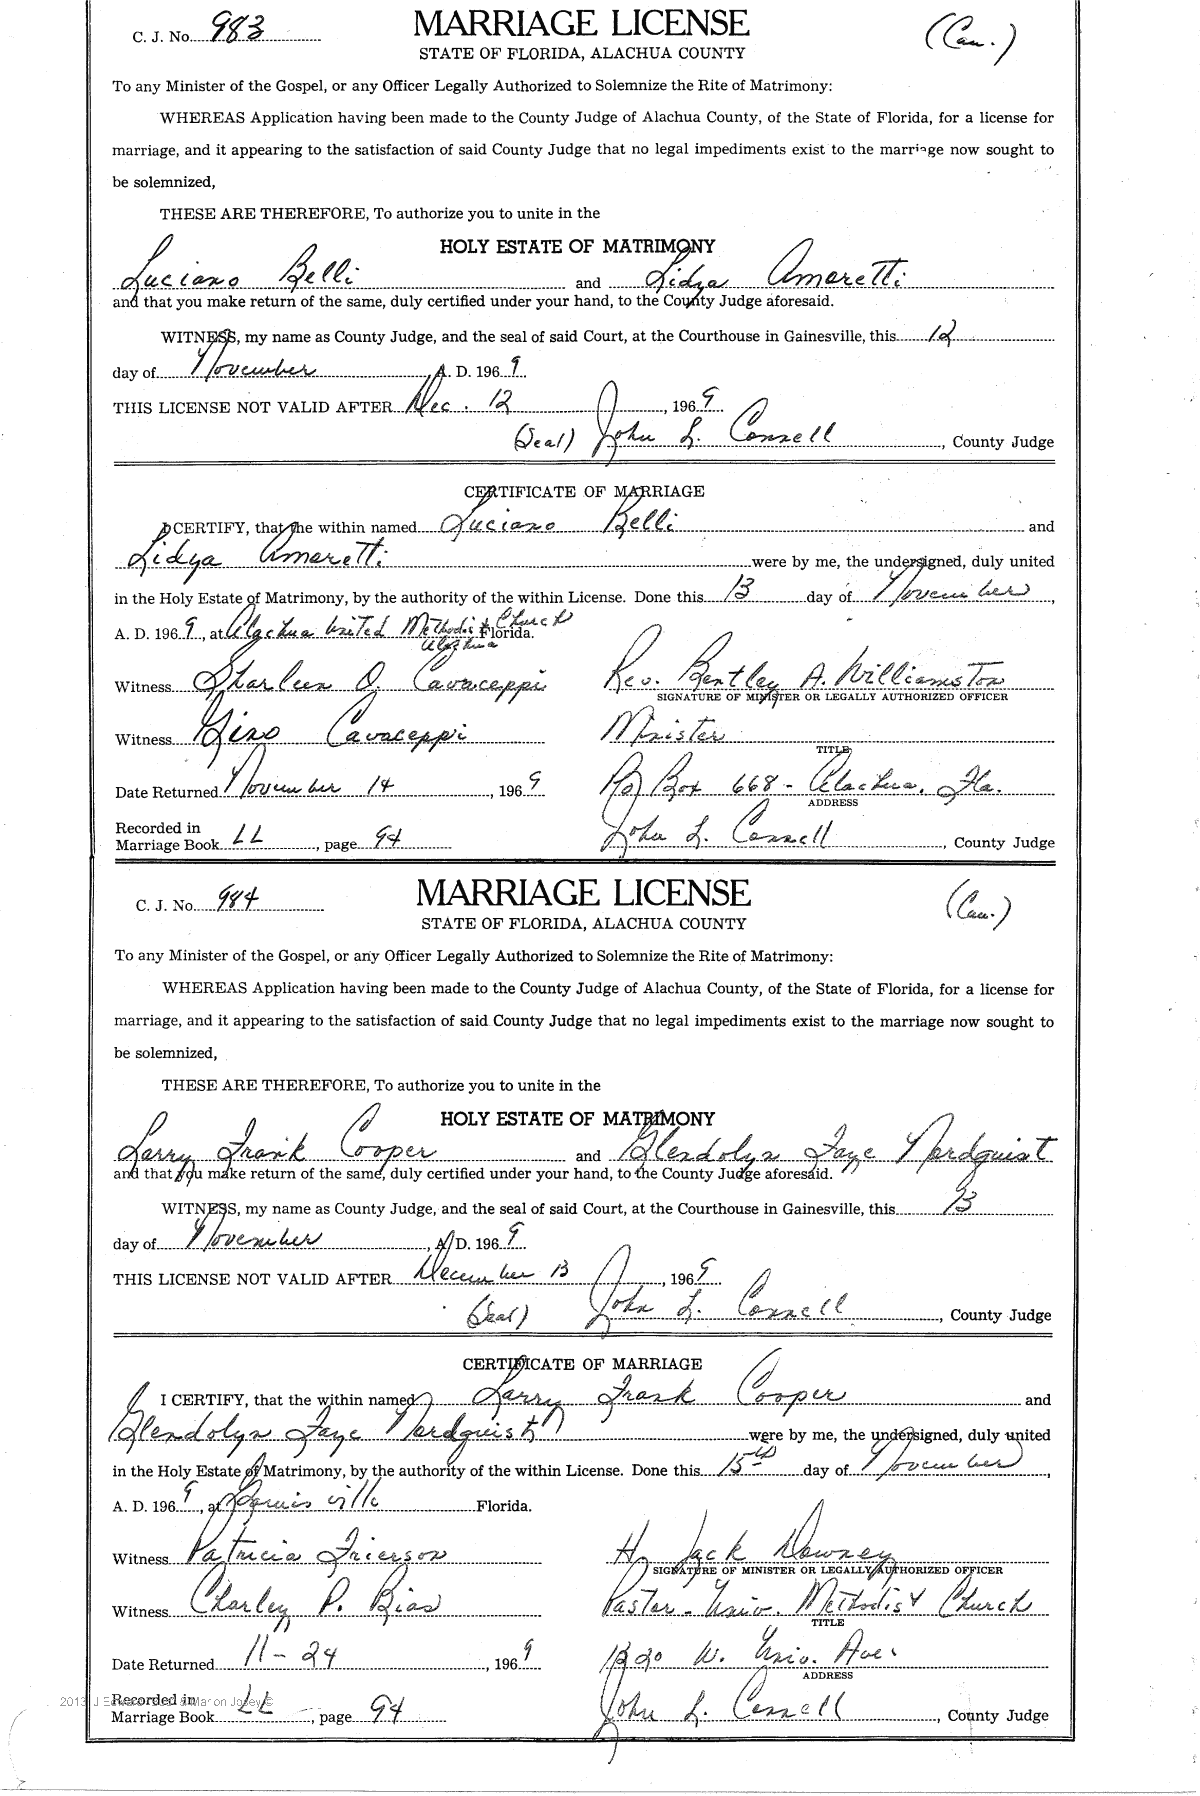 C. J. No. 983 MARRIAGE LICENSE (Cau.)
STATE OF FLORIDA, ALACHUA COUNTY
To any Minister of the Gospel, or any Officer Legally Authorized to Solemnize the Rite of Matrimony:
WHEREAS Application having been made to the County Judge of Alachua County, of the State of Florida, for a license for
marriage, and it appearing to the satisfaction of said County Judge that no legal impediments exist to the marriage now sought to
be solemnized,
THESE ARE THEREFORE, To authorize you to unite in the
HOLY ESTATE OF MATRIMONY
Luciano Belli and Lidya Amoretti
and that you make return of the same, duly certified under your hand, to the County Judge aforesaid.
WITNESS, my name as County Judge, and the seal of said Court, at the Courthouse in Gainesville, this 12
day of November, A. D. 1969
THIS LICENSE NOT VALID AFTER Dec. 12, 1969
(Seal) John L. Connell, County Judge
CERTIFICATE OF MARRIAGE
I CERTIFY, that the within named Luciano Belli and
Lidya Amoretti were by me, the undersigned, duly united
in the Holy Estate of Matrimony, by the authority of the within License. Done this 13 day of November,
A. D. 1969, at Alachua United Methodist Church Florida.
Alachua
Witness Sharleen O. Cavaceppi Rev. Bentley A. Williamston
SIGNATURE OF MINISTER OR LEGALLY AUTHORIZED OFFICER
Witness Gino Cavaceppi Minister
TITLE
Date Returned November 14, 1969 PO Box 668 - Alachua, Fla.
ADDRESS
Recorded in
Marriage Book LL, page 94 John L. Connell, County Judge
C. J. No. 984 MARRIAGE LICENSE (Cau.)
STATE OF FLORIDA, ALACHUA COUNTY
To any Minister of the Gospel, or any Officer Legally Authorized to Solemnize the Rite of Matrimony:
WHEREAS Application having been made to the County Judge of Alachua County, of the State of Florida, for a license for
marriage, and it appearing to the satisfaction of said County Judge that no legal impediments exist to the marriage now sought to
be solemnized,
THESE ARE THEREFORE, To authorize you to unite in the
HOLY ESTATE OF MATRIMONY
Larry Frank Cooper and Glendolyn Faye Nordquist
and that you make return of the same, duly certified under your hand, to the County Judge aforesaid.
WITNESS, my name as County Judge, and the seal of said Court, at the Courthouse in Gainesville, this 13
day of November, A. D. 1969
THIS LICENSE NOT VALID AFTER December 13, 1969
(Seal) John L. Connell, County Judge
CERTIFICATE OF MARRIAGE
I CERTIFY, that the within named Larry Frank Cooper and
Glendolyn Faye Nordquist were by me, the undersigned, duly united
in the Holy Estate of Matrimony, by the authority of the within License. Done this 15th day of November,
A. D. 1969, at Florida.
Witness Patricia Frierson H. Jack Downey
SIGNATURE OF MINISTER OR LEGALLY AUTHORIZED OFFICER
Witness Charley P. Bias Pastor - Univ. Methodist Church
TITLE
Date Returned 11-24, 1969 1320 W. Univ. Ave.
ADDRESS
Recorded in
Marriage Book LL, page 94 John L. Connell, County Judge